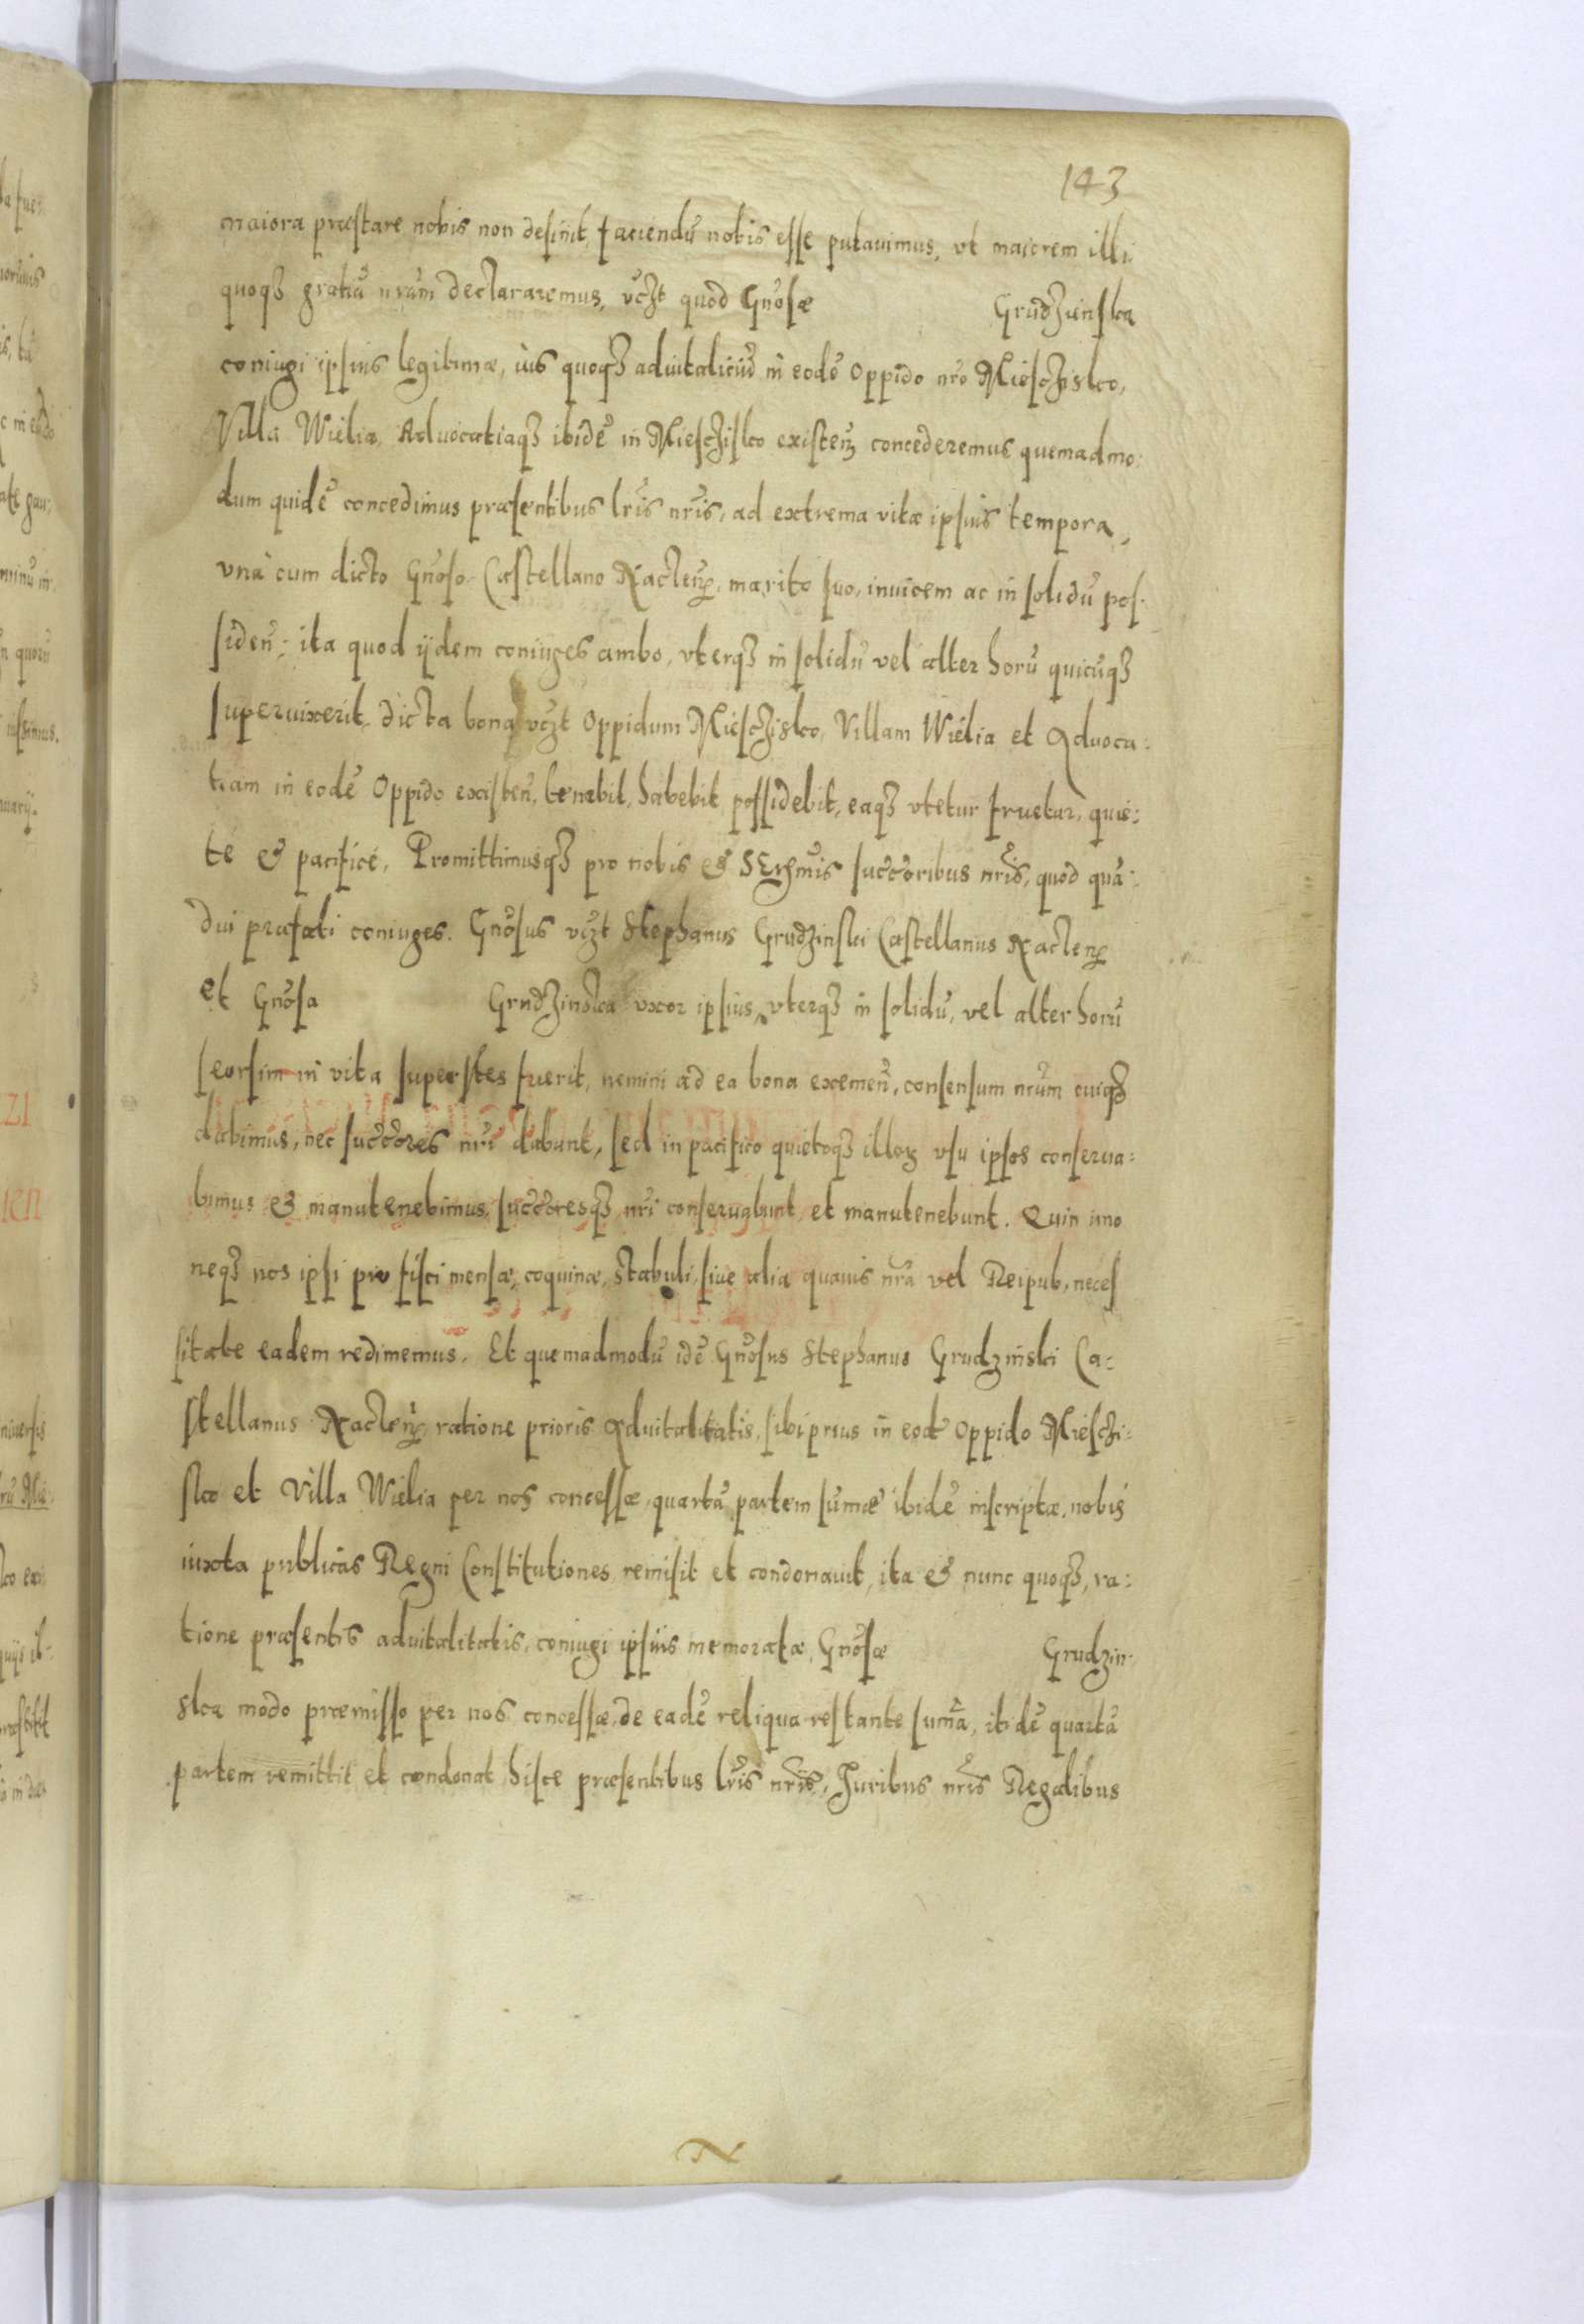 143
maiora præstare nobis non desinit, faciendũ nobis esse putauimus, vt maiorem illi
quoqȝ gratiã nr̃am declararemus, vcz̃t quod Gñosæ Grudzinska
coniugi ipsius legitimæ, ius quoqȝ aduitaliciũ in eodẽ Oppido nr̃o Miesczisko,
Villa Wiélia, Aduocatiaqȝ ibidẽ in Miesczisko existeñ concederemus quemadmo:
dum quidẽ concedimus præsentibus lr̃is nr̃is, ad extrema vitæ ipsius tempora,
vnà cum dicto Gñoso Castellano Nacleñ, marito suo, inuicem ac in solidũ pos:
sideñ: ita quod ijdem coniuges ambo, vterqȝ in solidũ vel alter horũ quicũqȝ
superuixerit, dicta bona vcz̃t Oppidum Miesczisko, Villam Wiélia et Aduoca:
tiam in eodẽ Oppido existeñ, tenebit, habebit, possidebit, eaqȝ vtetur fruetur, quie:
té & pacificé, Promittimusqȝ pro nobis & SErꝫmis succ̃oribus nr̃is, quod quã:
diu præfati coniuges. Gñosus vcz̃t Stephanus Grudzinski Castellanus Nacleñ
et Gñosa Grudzinska vxor ipsius, vterqȝ in solidũ, vel alter horũ
seorsim in vita superstes fuerit, nemini ad ea bona exemeñ, consensum nr̃um cuiqȝ
dabimus, nec succ̃ores nr̃i dabunt, sed in pacifico quietoqȝ illoꝝ vsu ipsos conserua:
bimus & manutenebimus, succ̃oresqȝ nr̃i conseruabunt et manutenebunt. Quin imo
neqȝ nos ipsi pro fisci mensæ, coquinæ, stabuli, siue alia quauis nr̃a vel Reipub, neces
sitate eadem redimemus. Et quemadmodũ idẽ Gñosus Stephanus Grudzinski Ca:
stellanus Nacleñ, ratione prioris Aduitalitatis, sibi prius in eodẽ Oppido Miesczi:
sko et Villa Wiélia per nos concessæ, quartã partem sum̃æ ibidẽ inscriptæ, nobis
iuxta publicas Regni Constitutiones remisit et condonauit, ita & nunc quoqȝ, ra:
tione præsentis aduitalitatis, coniugi ipsius memoratæ, Gñosæ Grudzin:
ska modo præmisso per nos concessæ, de eadẽ reliqua restante sum̃a, itidẽ quartã
partem remittit et condonat hisce præsentibus lr̃is nr̃is, Juribus nr̃is Regalibus